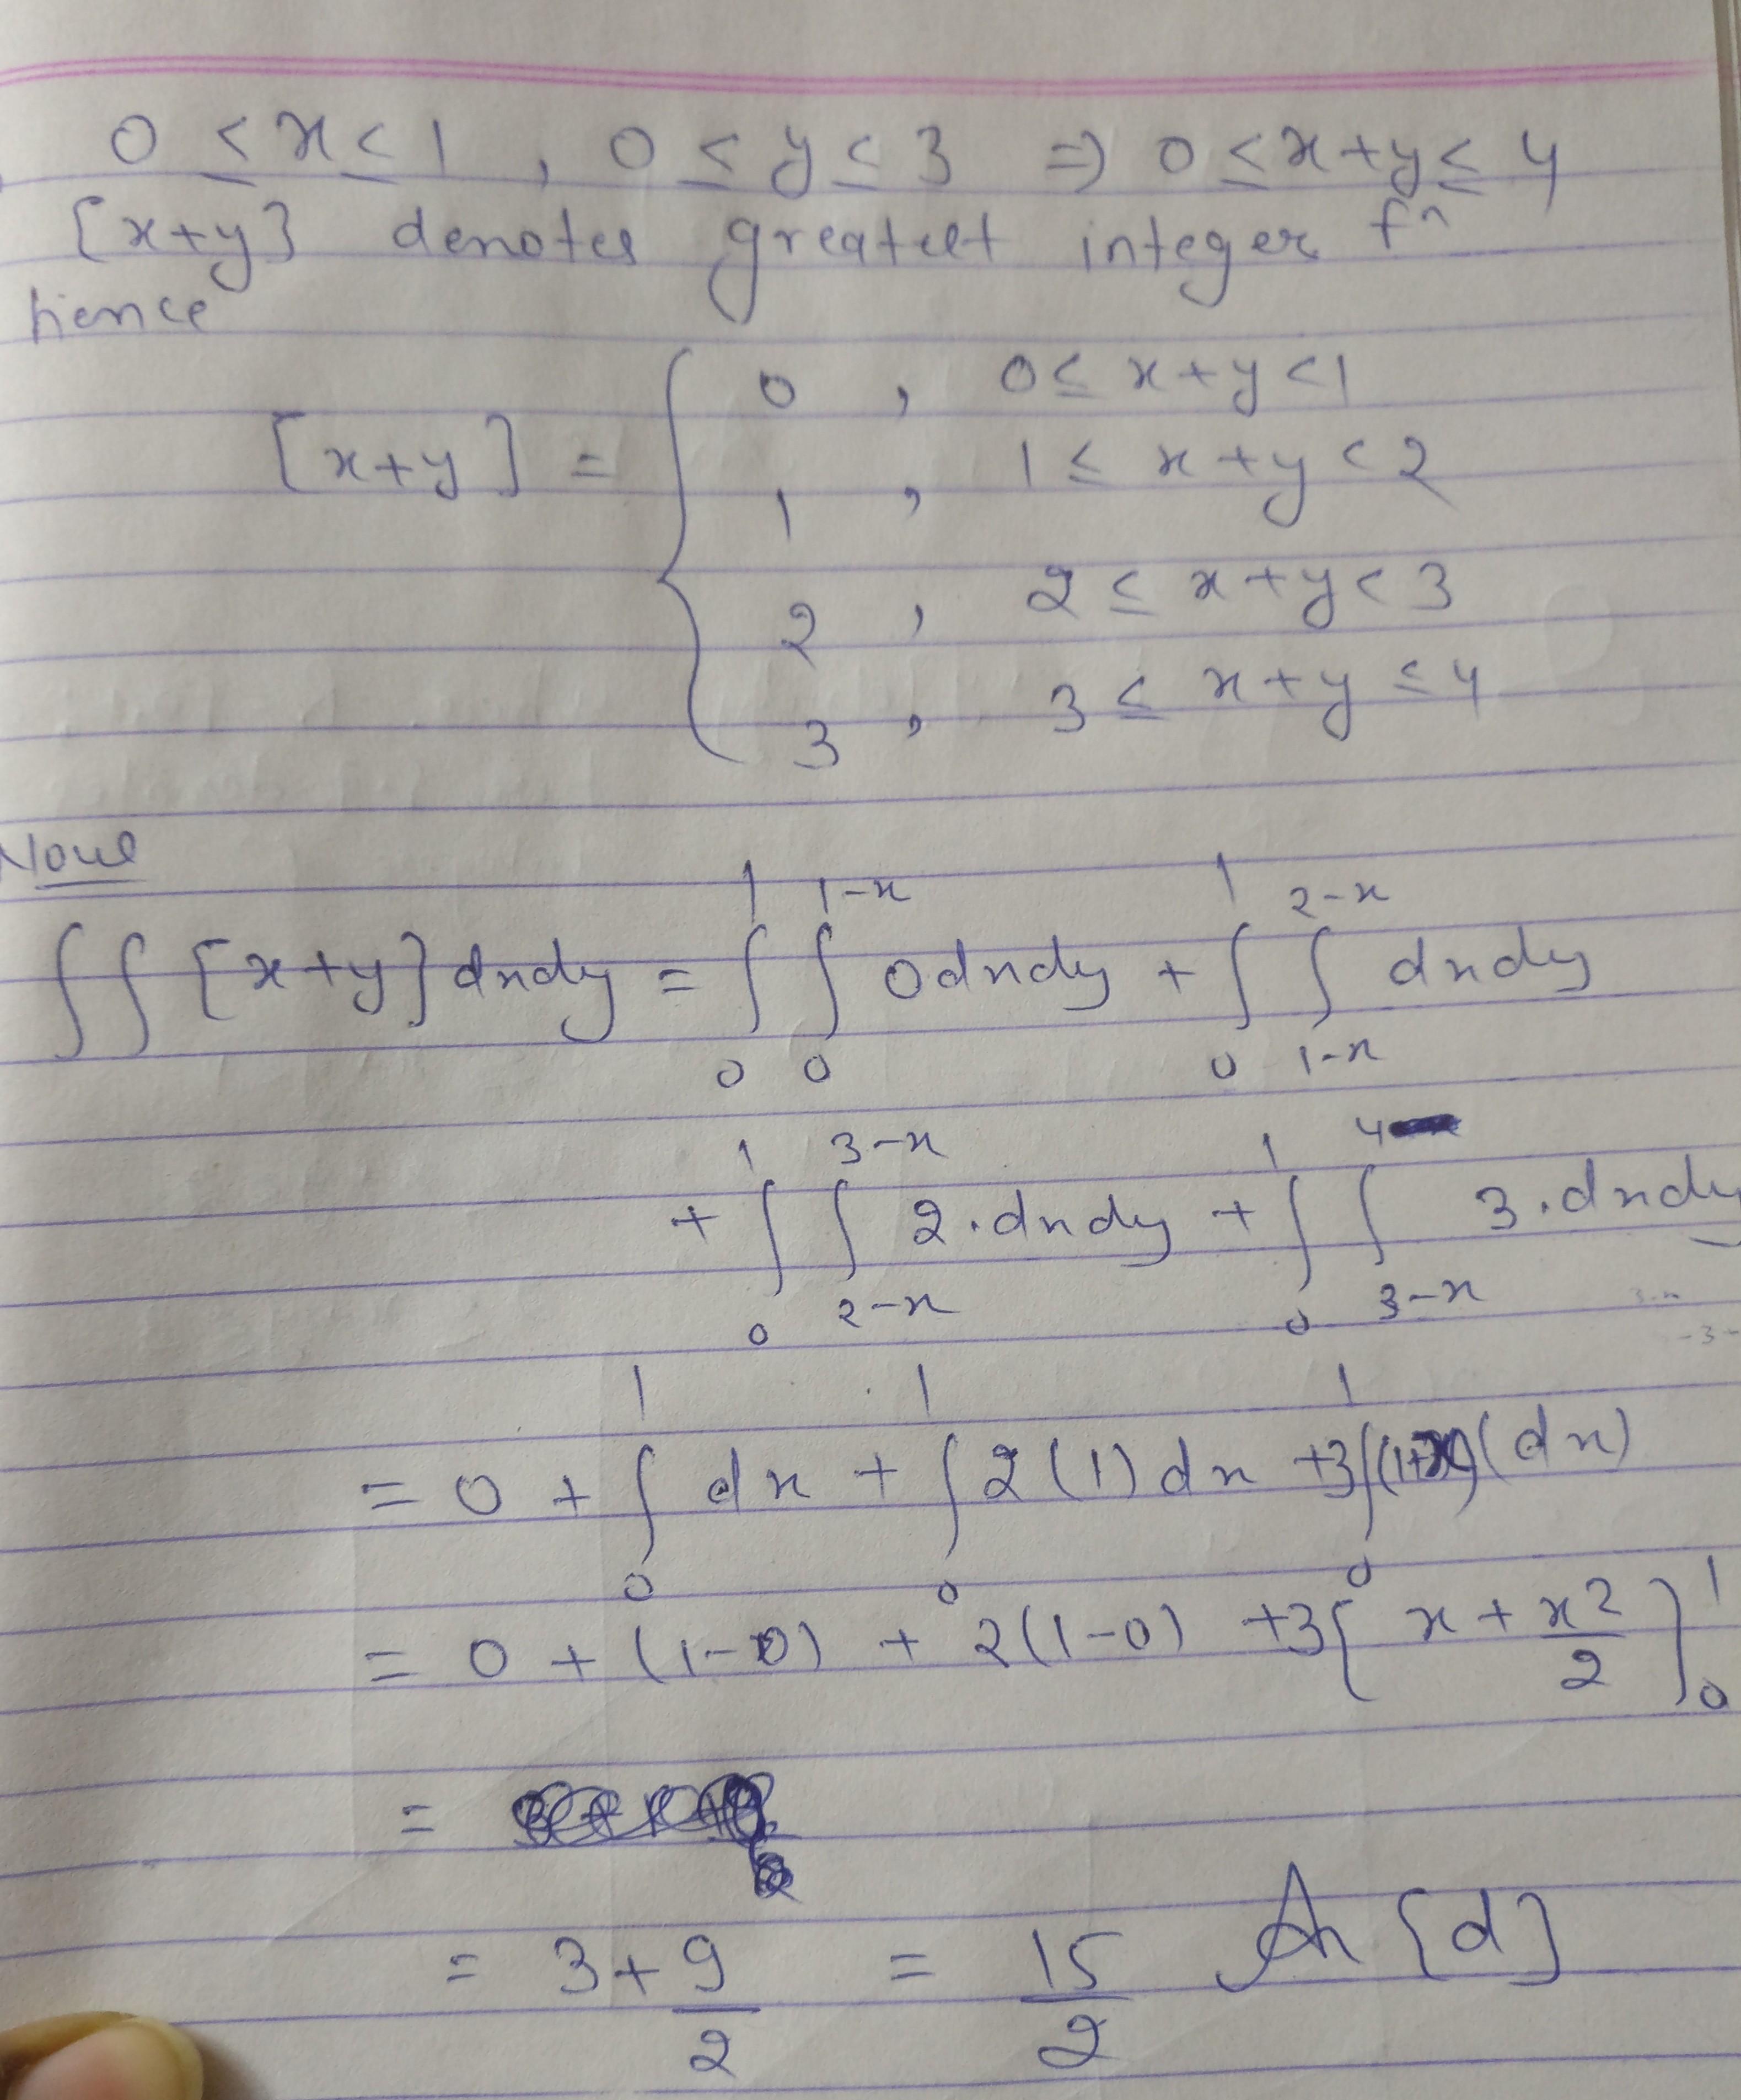 0 ≤ x ≤ 1 , 0 ≤ y ≤ 3 ⇒ 0 ≤ x+y ≤ 4
[x+y] denotes greatest integer fⁿ
hence
[x+y] = { 0 , 0 ≤ x+y < 1
1 , 1 ≤ x+y < 2
2 , 2 ≤ x+y < 3
3 , 3 ≤ x+y ≤ 4
Now
∫∫ [x+y] dxdy = ∫₀¹ ∫₀^{1-x} 0 dxdy + ∫₀¹ ∫_{1-x}^{2-x} dxdy
+ ∫₀¹ ∫_{2-x}^{3-x} 2·dxdy + ∫₀¹ ∫_{3-x}^{4} 3·dxdy
= 0 + ∫₀¹ dx + ∫₀¹ 2(1)dx + 3∫₀¹ (1+x)(dx)
= 0 + (1-0) + 2(1-0) + 3[x + x²/2]₀¹
=
= 3 + 9/2 = 15/2 [d]